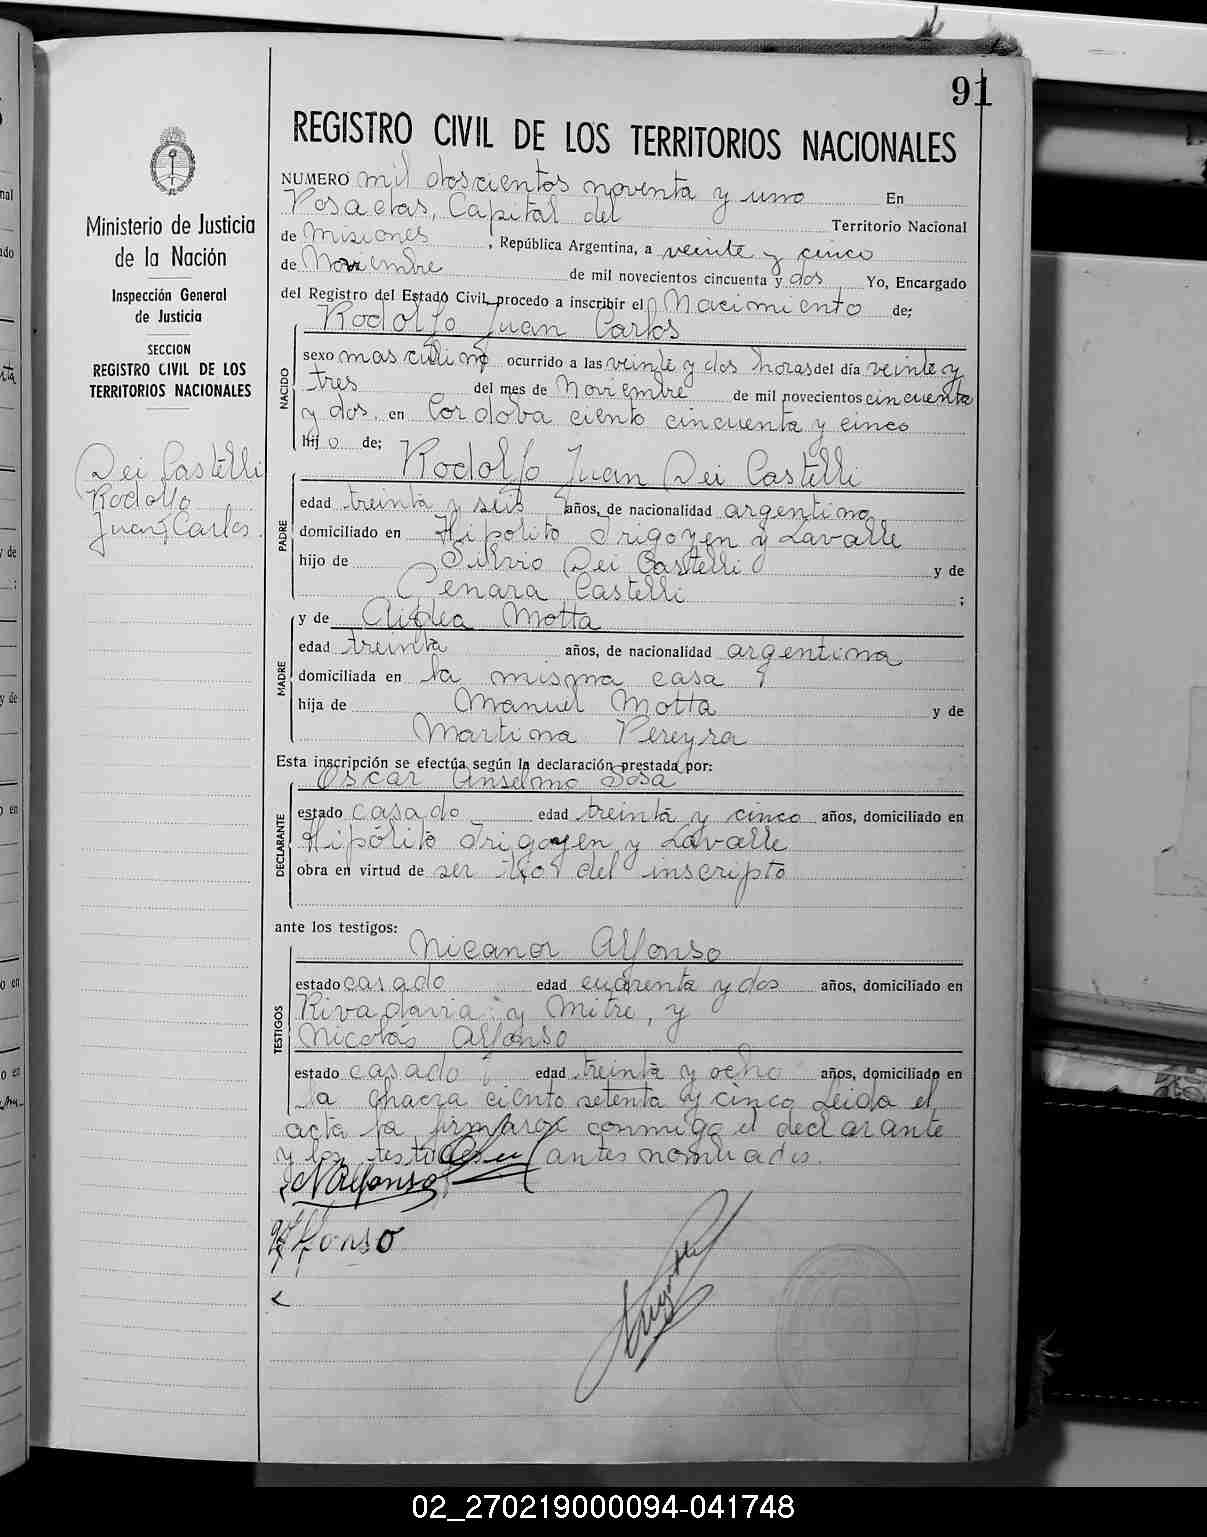 91
REGISTRO CIVIL DE LOS TERRITORIOS NACIONALES
NUMERO mil doscientos noventa y uno En
Posadas, Capital del Territorio Nacional
de Misiones, República Argentina, a veinte y cinco
de Noviembre de mil novecientos cincuenta y dos Yo, Encargado
del Registro del Estado Civil, procedo a inscribir el Nacimiento de:
Rodolfo Juan Carlos
NACIDO
sexo masculino ocurrido a las veinte y dos horas del día veinte y
tres del mes de Noviembre de mil novecientos cincuenta
y dos, en Cordoba ciento cincuenta y cinco
hijo de;
Rodolfo Juan Dei Castelli
PADRE
edad treinta y seis años, de nacionalidad argentina
domiciliado en Hipolito Irigoyen y Lavalle
hijo de Silvio Dei Castelli y de
Genara Castelli ;
y de Aidea Motta
MADRE
edad treinta años, de nacionalidad argentina
domiciliada en la misma casa
hija de Manuel Motta y de
Martina Pereyra
Esta inscripción se efectúa según la declaración prestada por:
Oscar Anselmo Sosa
DECLARANTE
estado casado edad treinta y cinco años, domiciliado en
Hipólito Irigoyen y Lavalle
obra en virtud de ser tío del inscripto
ante los testigos:
Nicanor Alfonso
TESTIGOS
estado casado edad cuarenta y dos años, domiciliado en
Rivadavia y Mitre, y
Nicolás Alfonso
estado casado edad treinta y ocho años, domiciliado en
la chacra ciento setenta y cinco Leida el
acta la firmaron conmigo el declarante
y los testigos antes nombrados.
N Alfonso
Alfonso
Ministerio de Justicia
de la Nación
Inspección General
de Justicia
SECCION
REGISTRO CIVIL DE LOS
TERRITORIOS NACIONALES
Dei Castelli
Rodolfo
Juan Carlos.
02_270219000094-041748